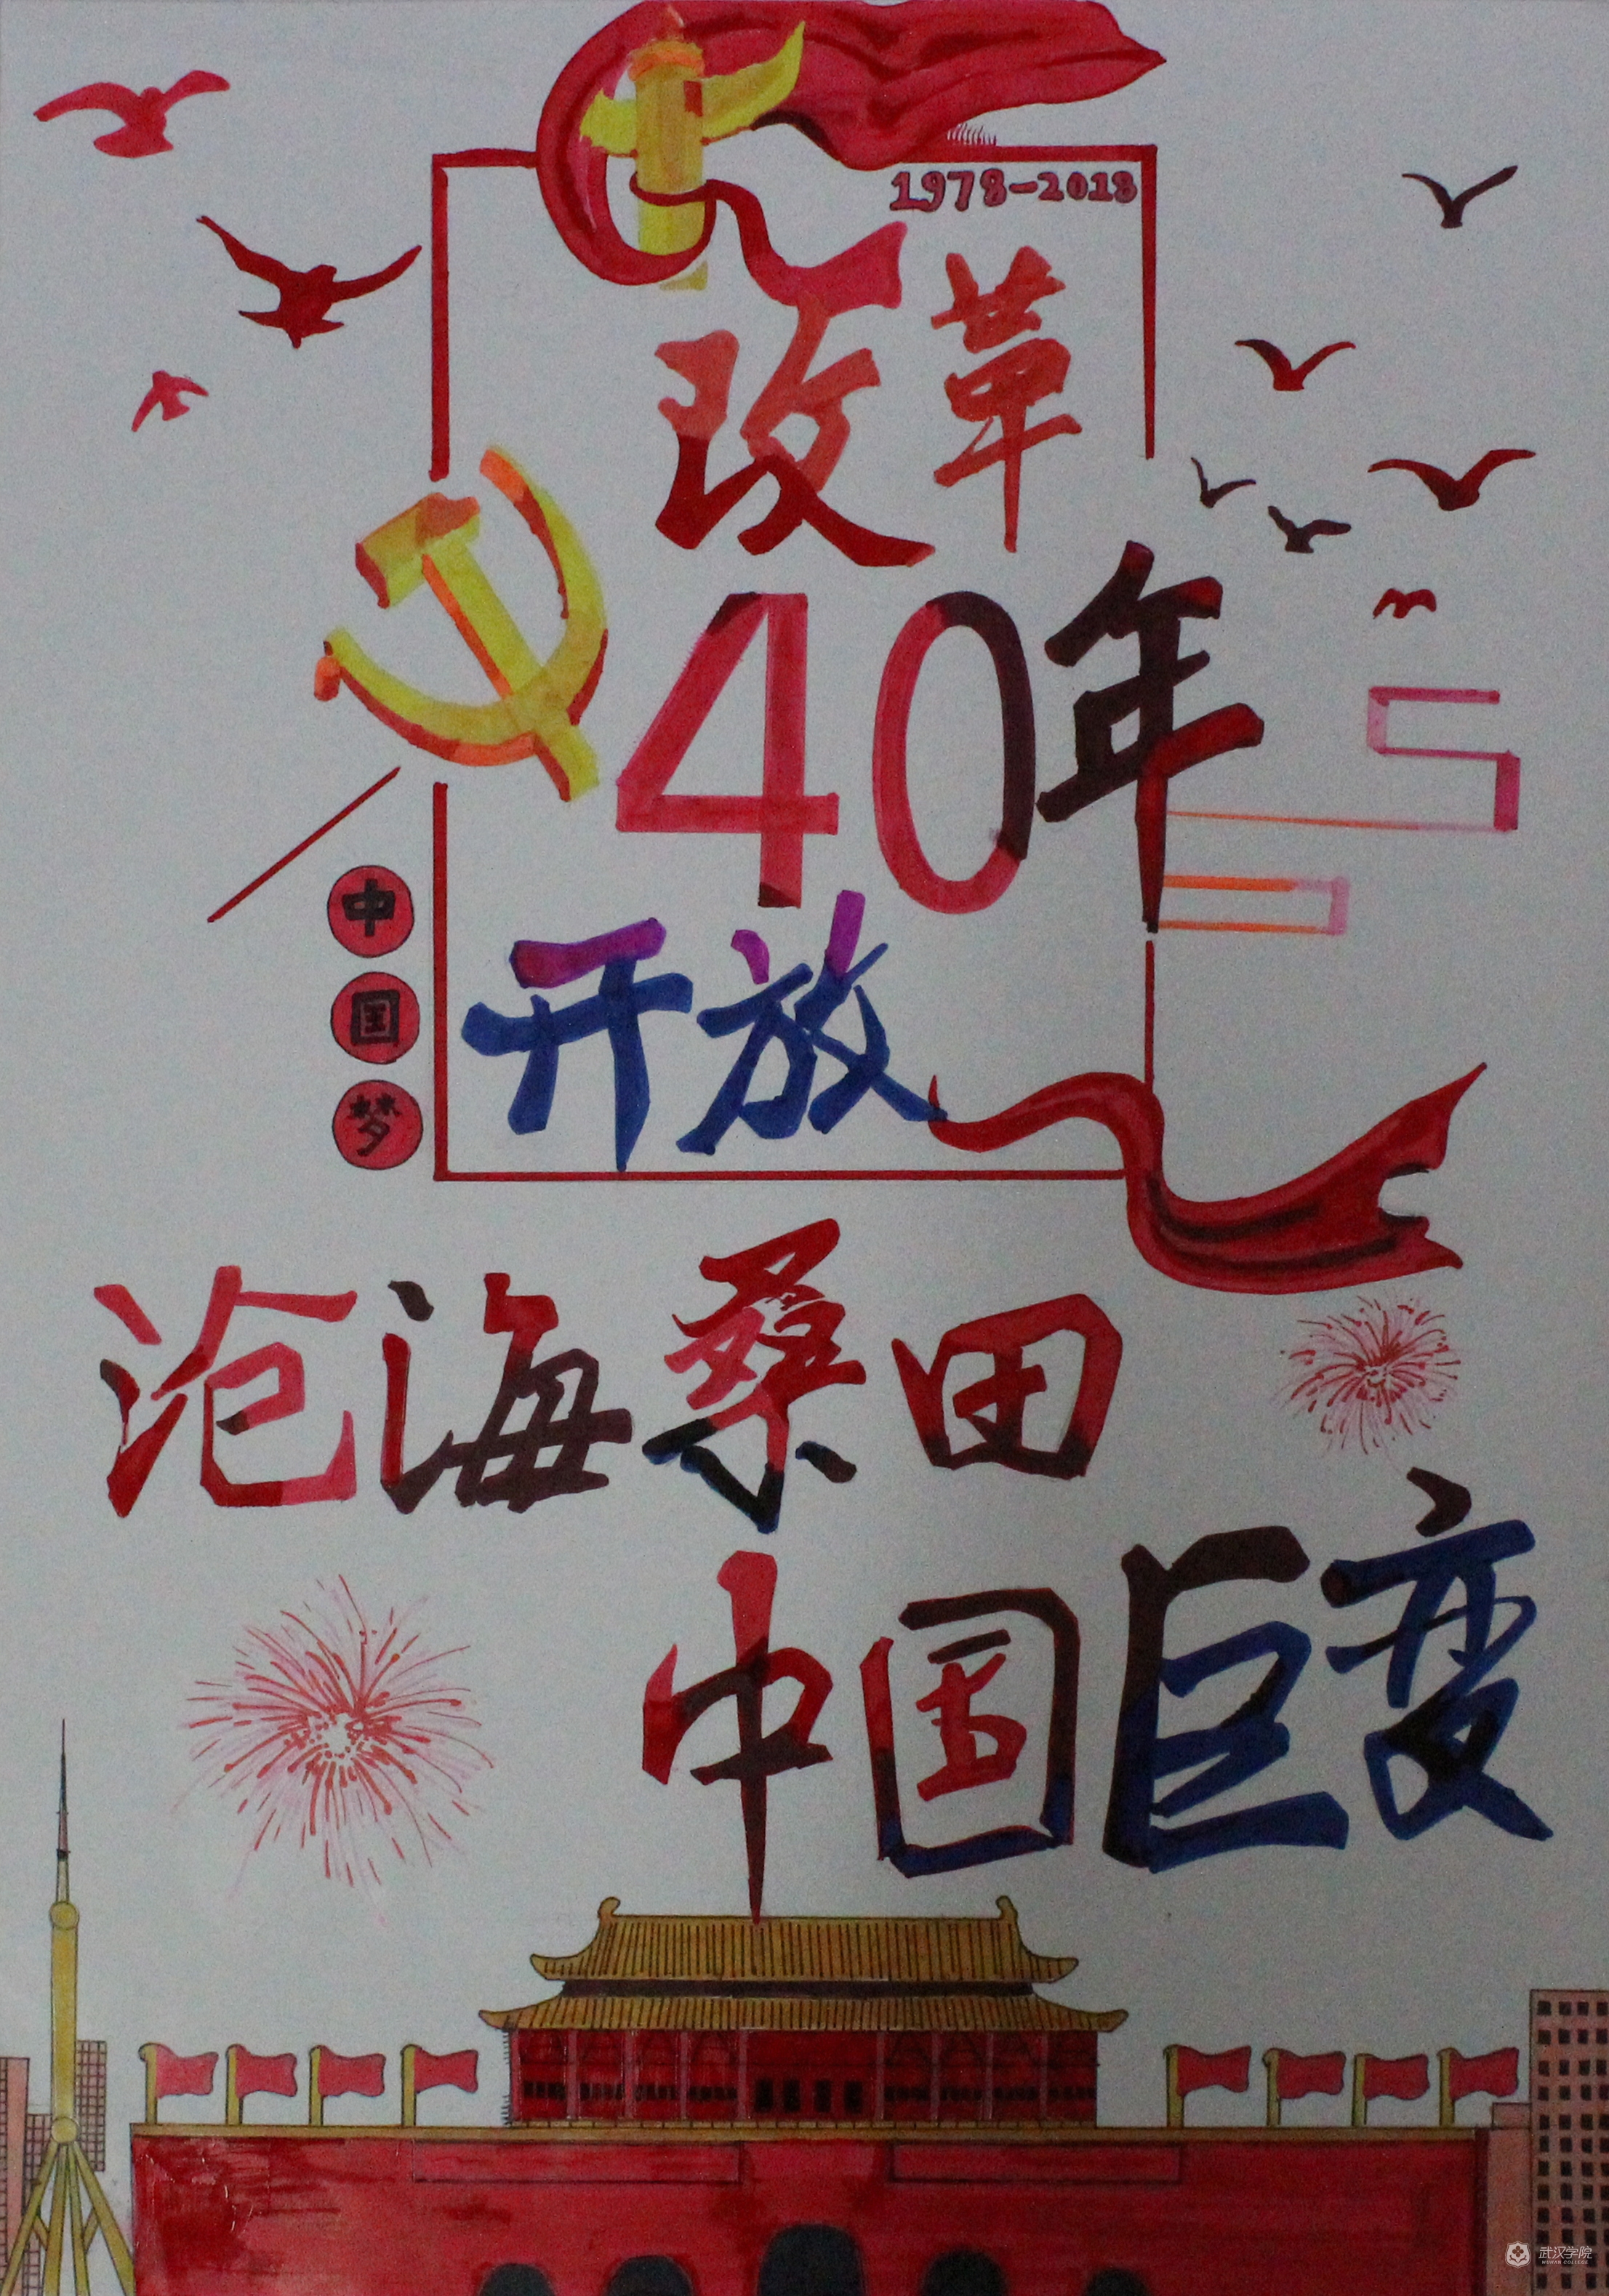 1978-2018
改革
40年
开放
中
国
梦
沧海桑田
中国巨变
武汉学院
WUHAN COLLEGE